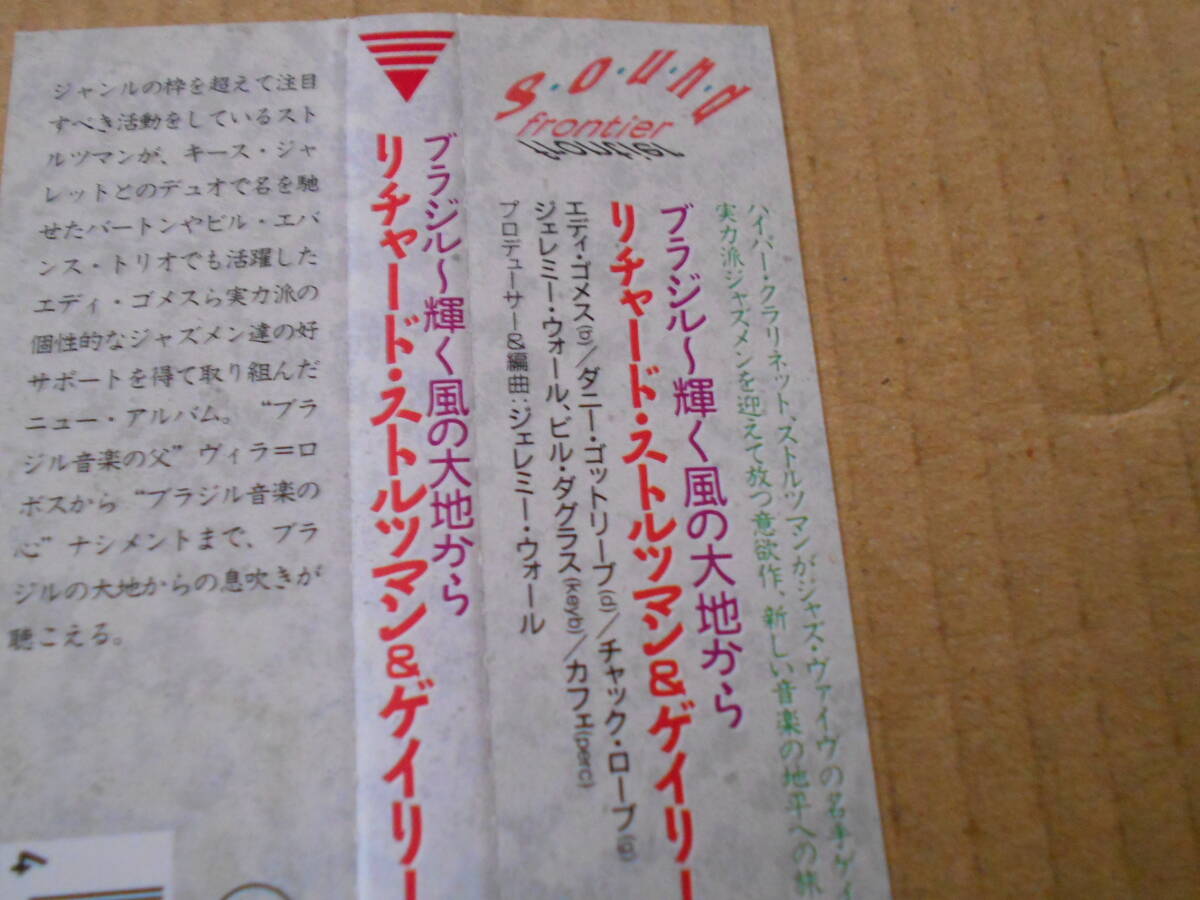 S・O・U・N・D
frontier
ハイパー・クラリネット、ストルツマンがジャズ・ヴァイヴの名手ゲイ
実力派ジャズメンを迎えて放つ意欲作、新しい音楽の地平への旅
ブラジル〜輝く風の大地から
リチャード・ストルツマン&ゲイリー
エディ・ゴメス(b)/ダニー・ゴットリーブ(d)/チャック・ローブ(g)
ジェレミー・ウォール、ビル・ダグラス(keyb)/カフェ(perc)
プロデューサー&編曲:ジェレミー・ウォール
ブラジル〜輝く風の大地から
リチャード・ストルツマン&ゲイリー
ジャンルの枠を超えて注目
すべき活動をしているスト
ルツマンが、キース・ジャ
レットとのデュオで名を馳
せたバートンやビル・エバ
ンス・トリオでも活躍した
エディ・ゴメスら実力派の
個性的なジャズメン達の好
サポートを得て取り組んだ
ニュー・アルバム。“ブラ
ジル音楽の父”ヴィラ=ロ
ボスから“ブラジル音楽の
心”ナシメントまで、ブラ
ジルの大地からの息吹きが
聴こえる。
4